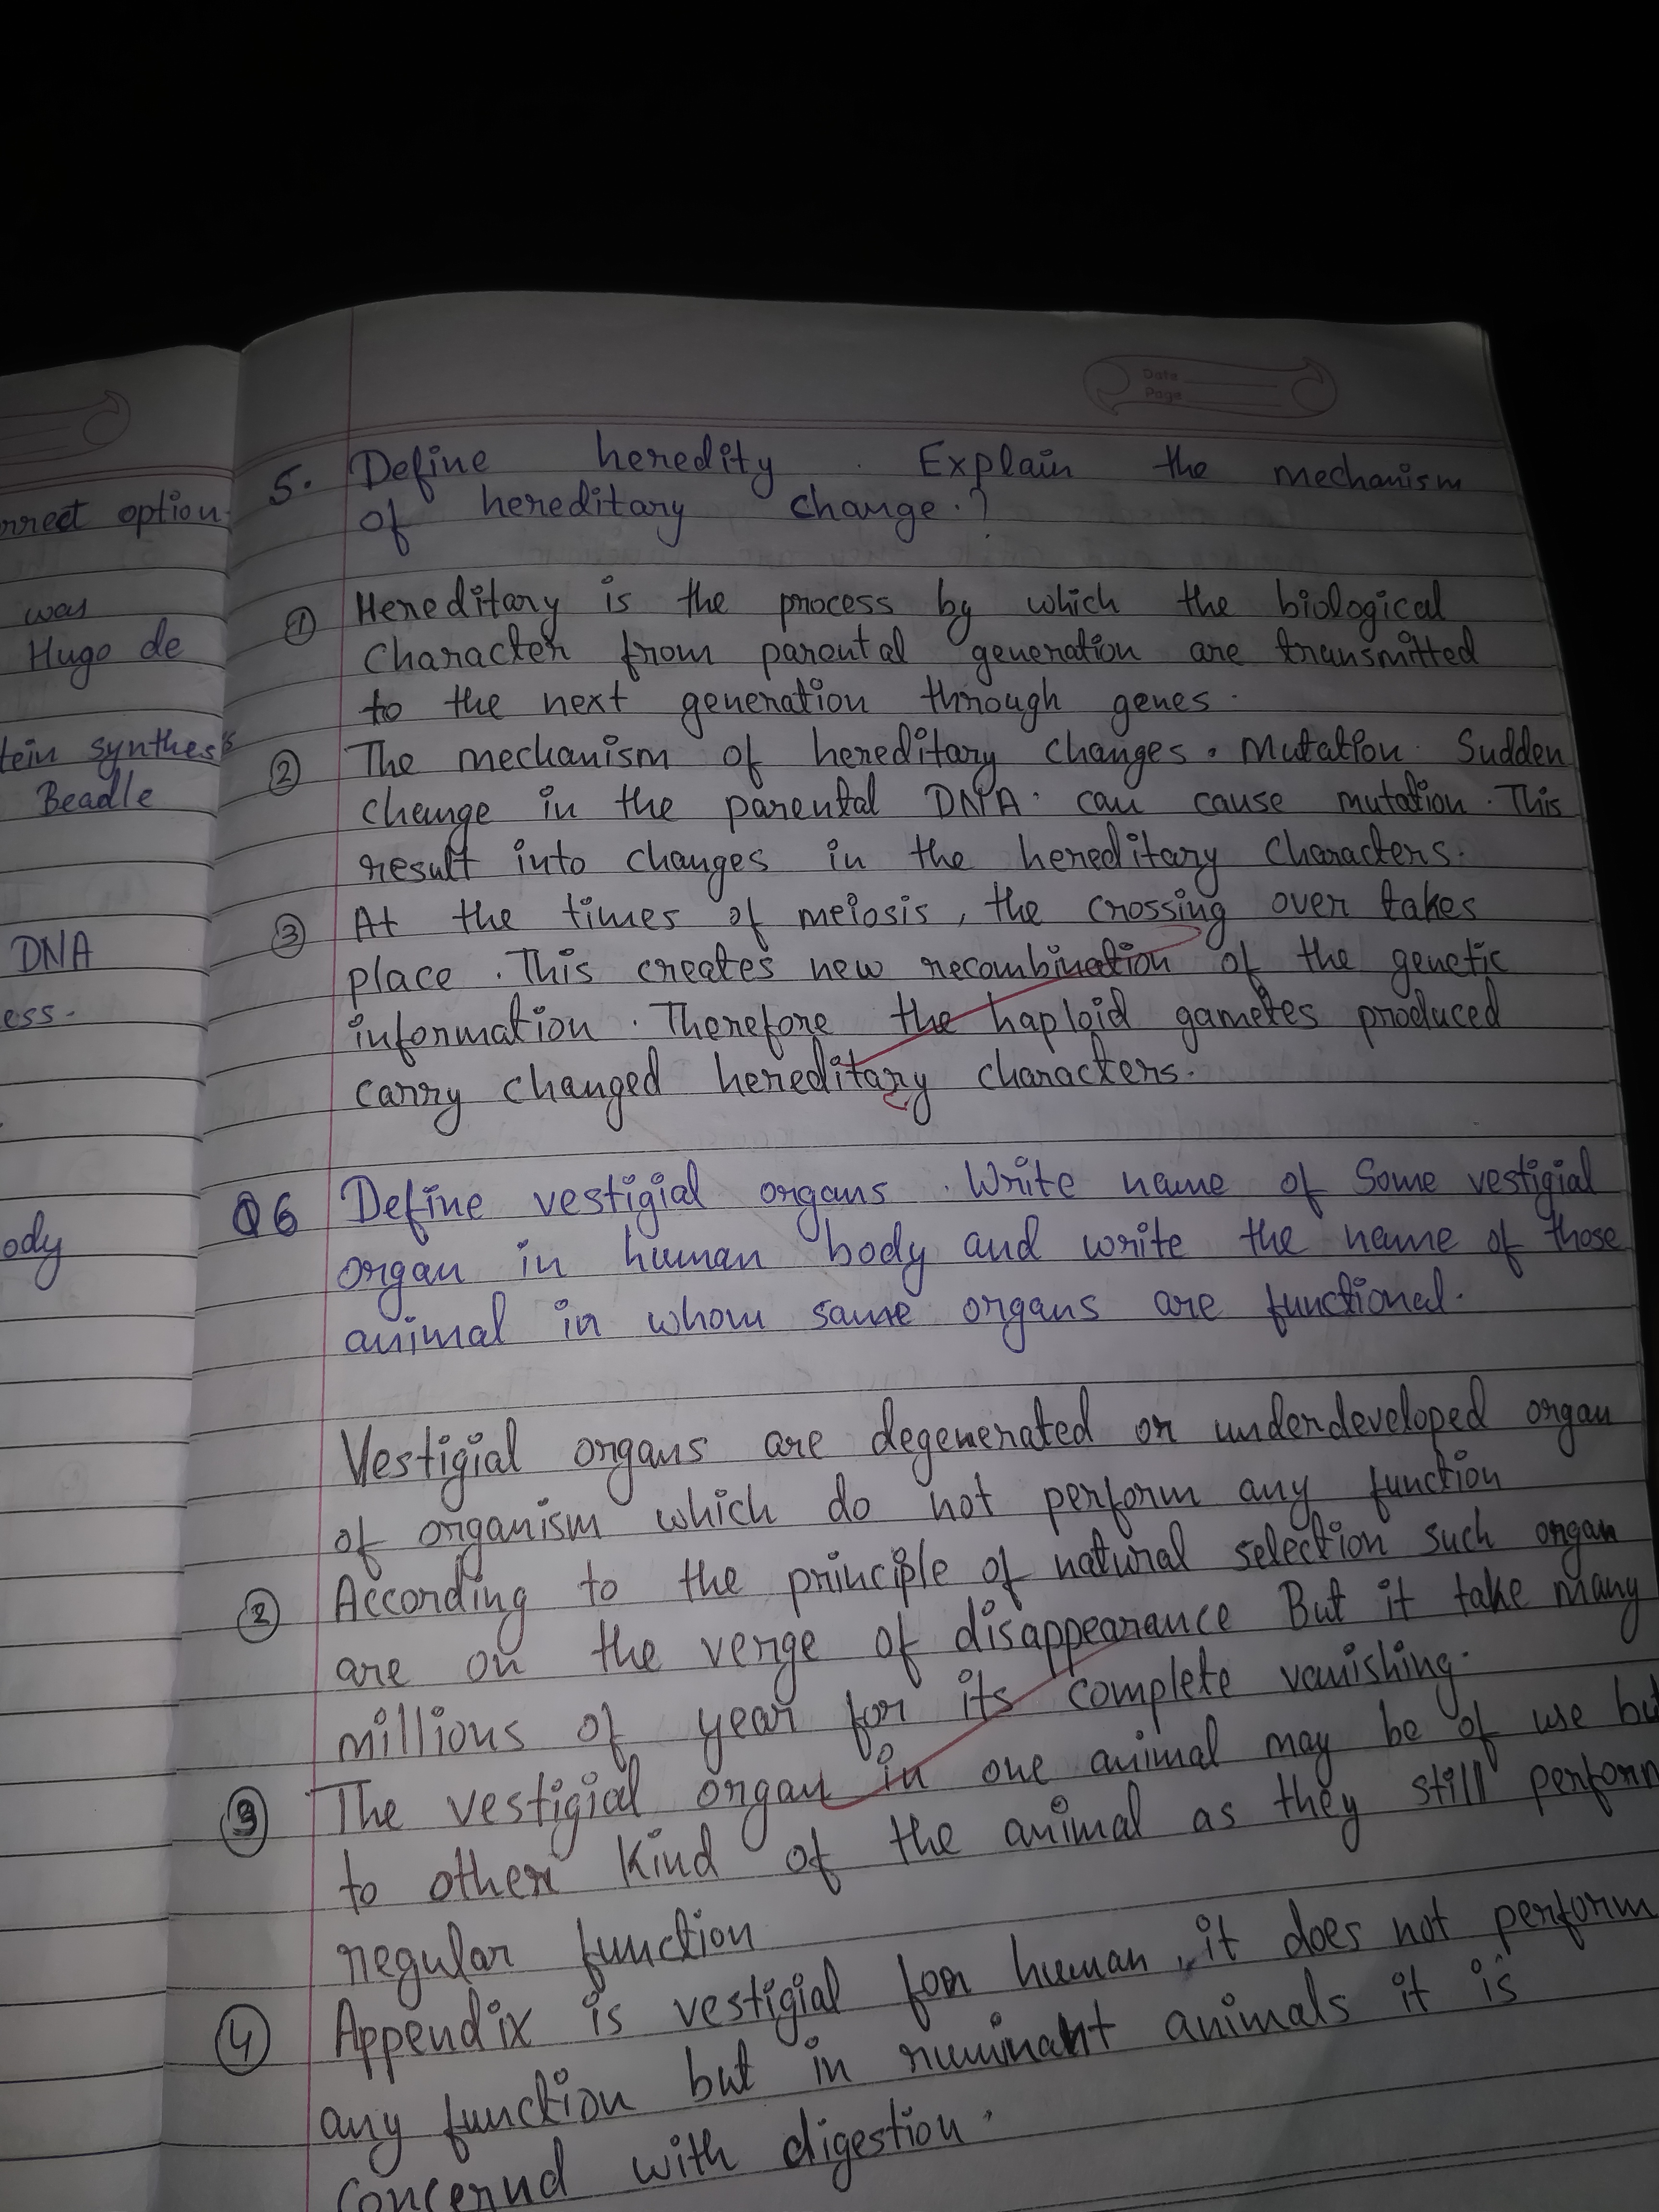 Date
Page
rrect option.
was
Hugo de
tein synthesis
Beadle
DNA
ess.
ody
5. Define heredity. Explain the mechanism
of hereditary change.?
① Hereditary is the process by which the biological
Character from parental generation are transmitted
to the next generation through genes.
② The mechanism of hereditary changes. Mutation. Sudden
change in the parental DNA. can cause mutation. This
result into changes in the hereditary characters.
③ At the times of meiosis, the crossing over takes
place. This creates new recombination of the genetic
information. Therefore the haploid gametes produced
carry changed hereditary characters.
Q6 Define vestigial organs. Write name of Some vestigial
organ in human body and write the name of those
animal in whom same organs are functional.
Vestigial organs are degenerated or underdeveloped organ
of organism which do not perform any function
② According to the principle of natural selection such organ
are on the verge of disappearance But it take many
millions of year for its complete vanishing.
③ The vestigial organ in one animal may be of use bu
to other kind of the animal as they still perform
regular function
④ Appendix is vestigial for human, it does not perform
any function but in ruminant animals it is
concernd with digestion.